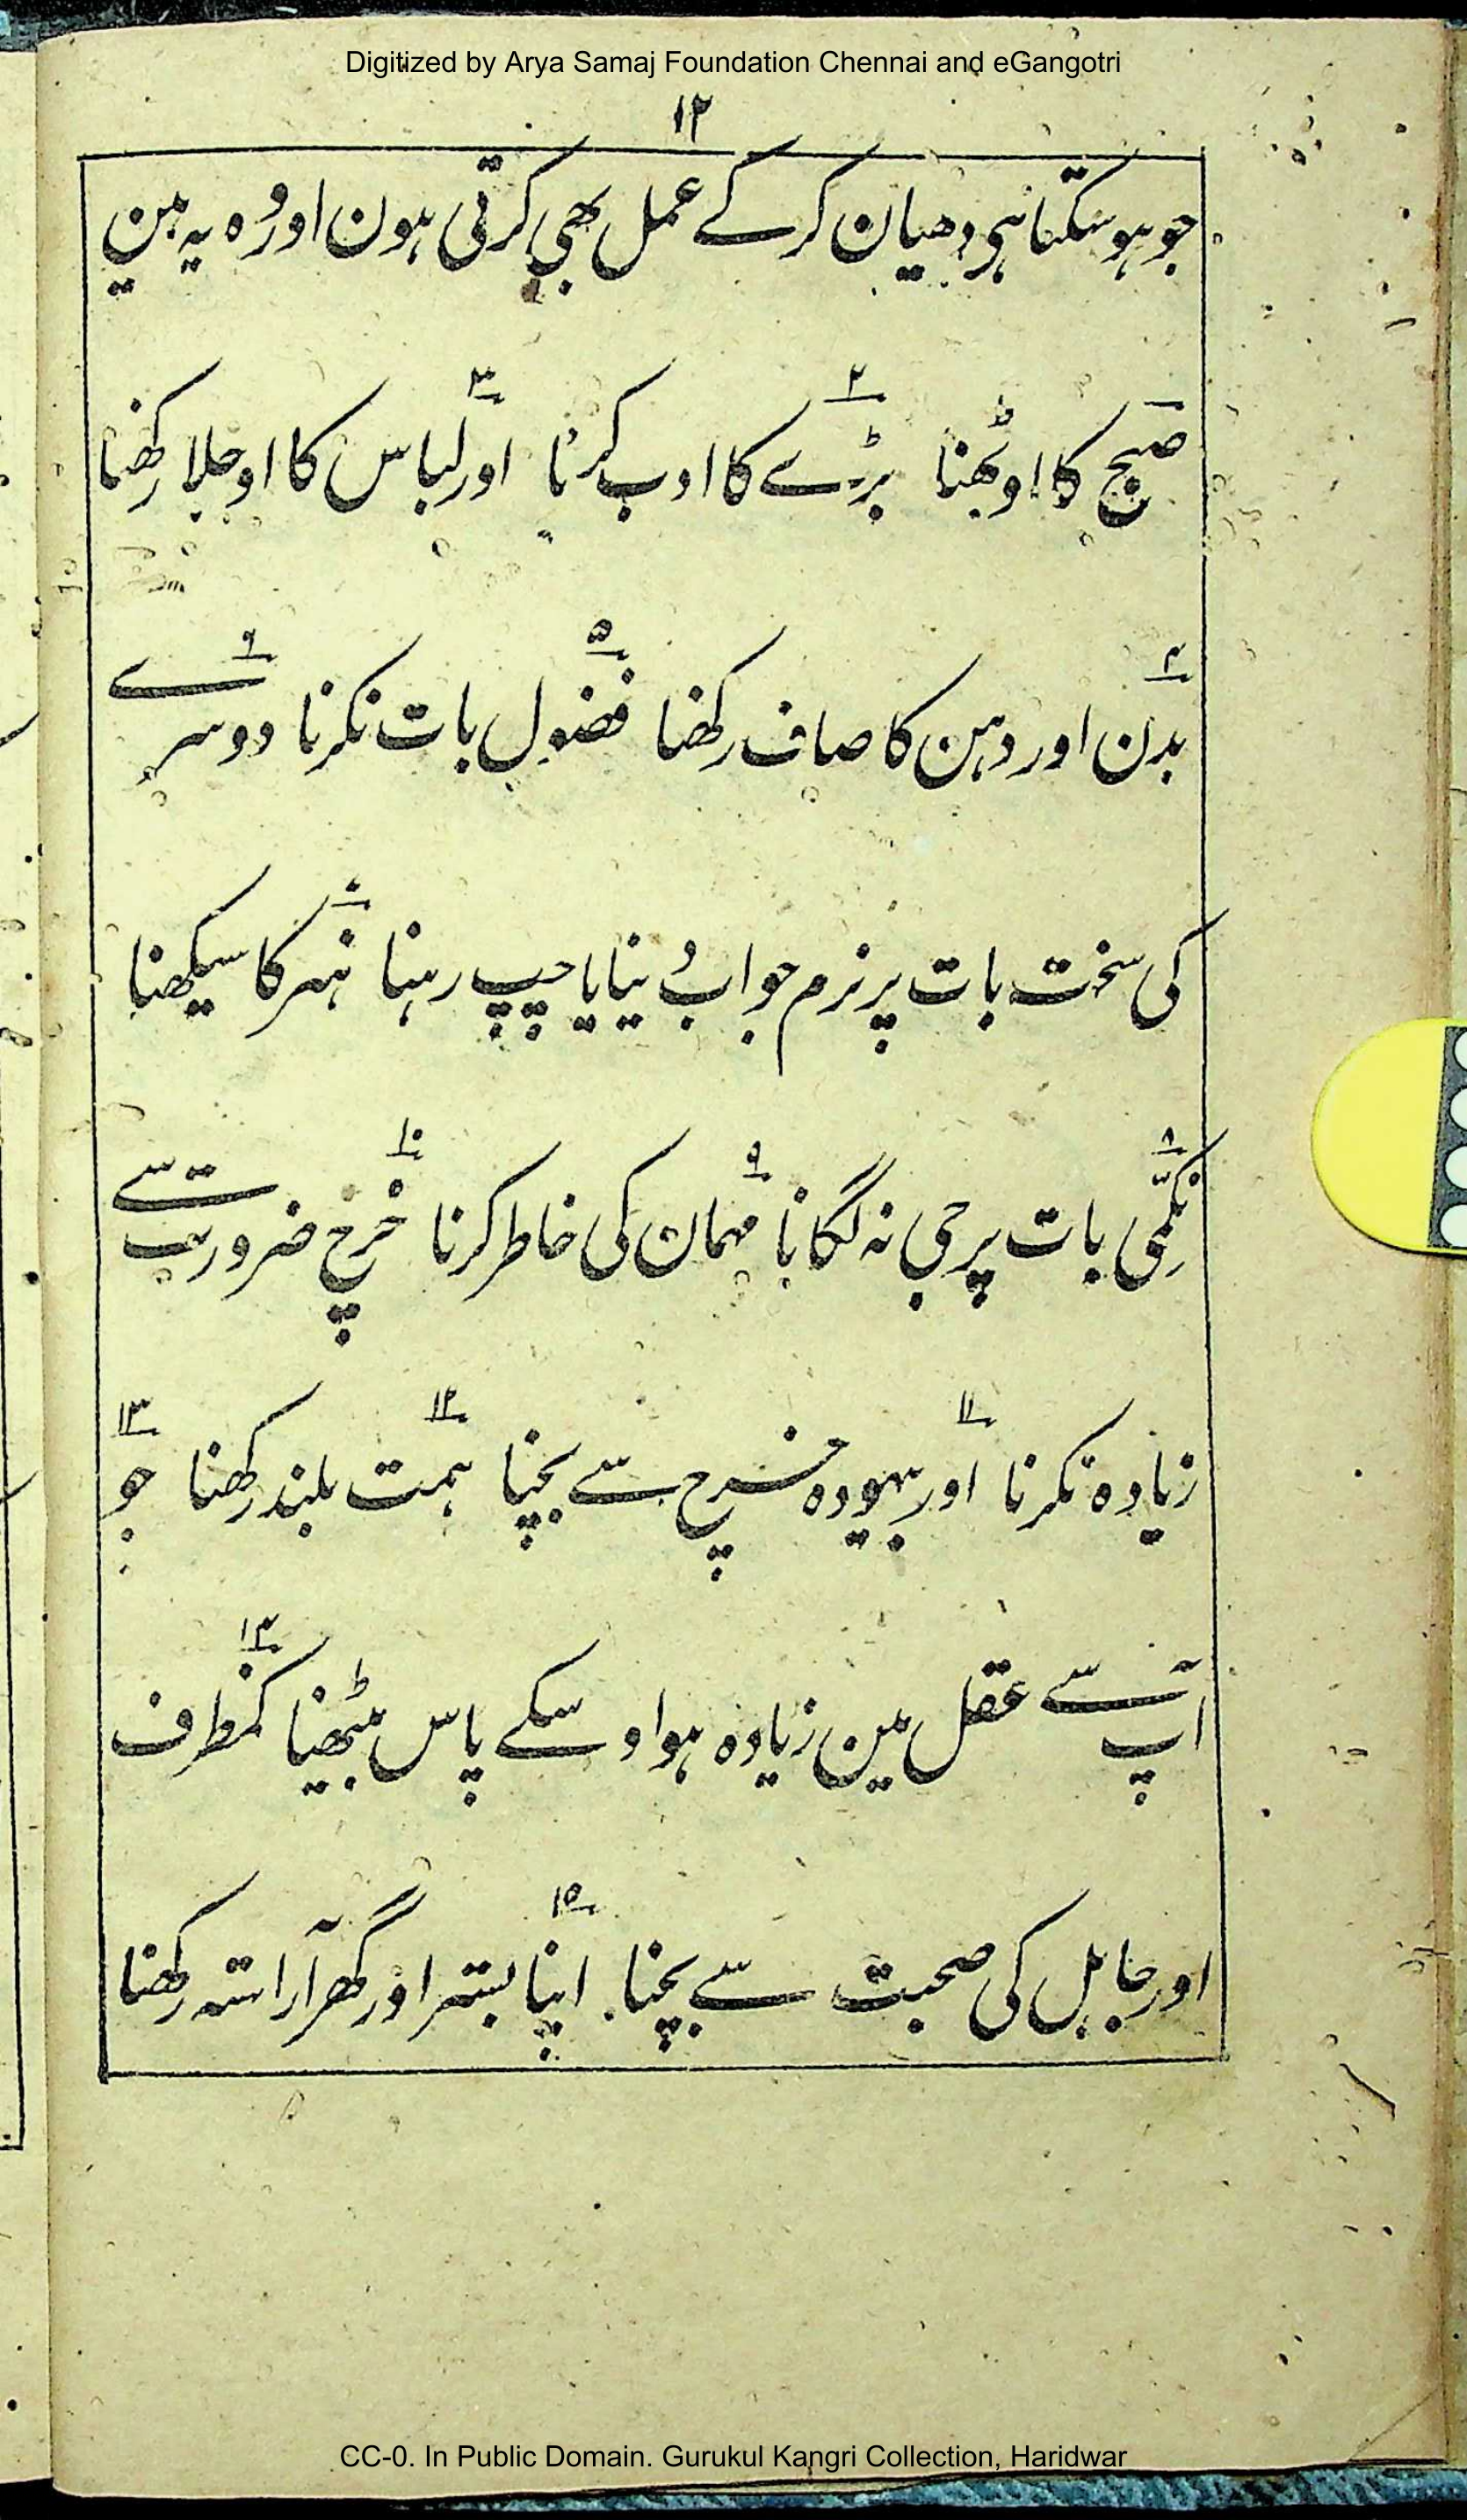 Digitized by Arya Samaj Foundation Chennai and eGangotri
۱۲
جو ہو سکتا ہی دھیان کرکے عمل بھی کرتی ہون اور وہ یہ ہین
صبح کا اوٹھنا ۲ بڑے کا ادب کرنا ۳ اور لباس کا اوجلا رکھنا
۴ بدن اور دہن کا صاف رکھنا ۵ فضول بات نکرنا ۶ دوسرے
کی سخت بات پر نرم جواب دینا یا چپ رہنا ۷ ہنر کا سیکھنا
۸ نکمّی بات پر جی نہ لگانا ۹ مہمان کی خاطر کرنا ۱۰ خرچ ضرورت سے
زیادہ نکرنا ۱۱ اور بیہودہ خرچ سے بچنا ۱۲ ہمت بلند رکھنا ۱۳ جو
آپ سے عقل مین زیادہ ہو اوسکے پاس بیٹھنا ۱۴ کمظرف
اور جاہل کی صحبت سے بچنا ۱۵ اپنا بستر اور گھر آراستہ رکھنا
CC-0. In Public Domain. Gurukul Kangri Collection, Haridwar